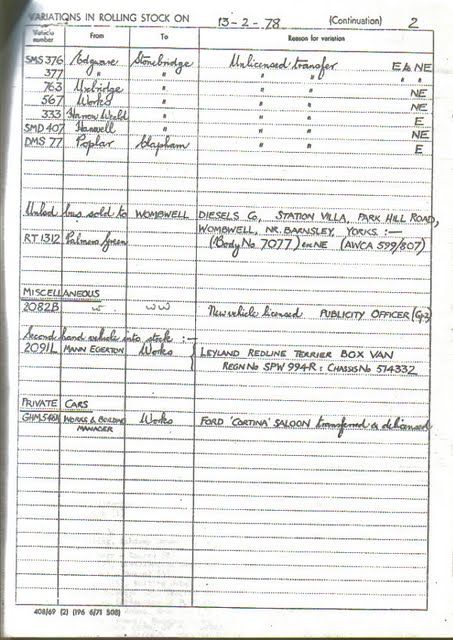 VARIATIONS IN ROLLING STOCK ON 13-2-78 (Continuation) 2
Vehicle number From To Reason for variation
SMS 376 Edgware Stonebridge Unlicensed transfer E to NE
377 " " " " " "
763 Uxbridge " " " NE
567 Works " " " NE
333 Harrow Weald " " " E
SMD 407 Hanwell " " " NE
DMS 77 Poplar Clapham " " E
Unlcd bus sold to WOMBWELL DIESELS Co, STATION VILLA, PARK HILL ROAD,
WOMBWELL, NR. BARNSLEY, YORKS :—
RT 1312 Palmers Green (Body No 7077) ex NE (AWCA 599/807)
MISCELLANEOUS
2082B WW New vehicle licensed PUBLICITY OFFICER
Second hand vehicle into stock :—
2091L MANN EGERTON Works LEYLAND REDLINE TERRIER BOX VAN
REGN No SPW 994R : CHASSIS No 514332
PRIVATE CARS
WORKS & BUILDING MANAGER Works FORD 'CORTINA' SALOON transferred & delicensed
408/69 (2) (196 6/71 508)